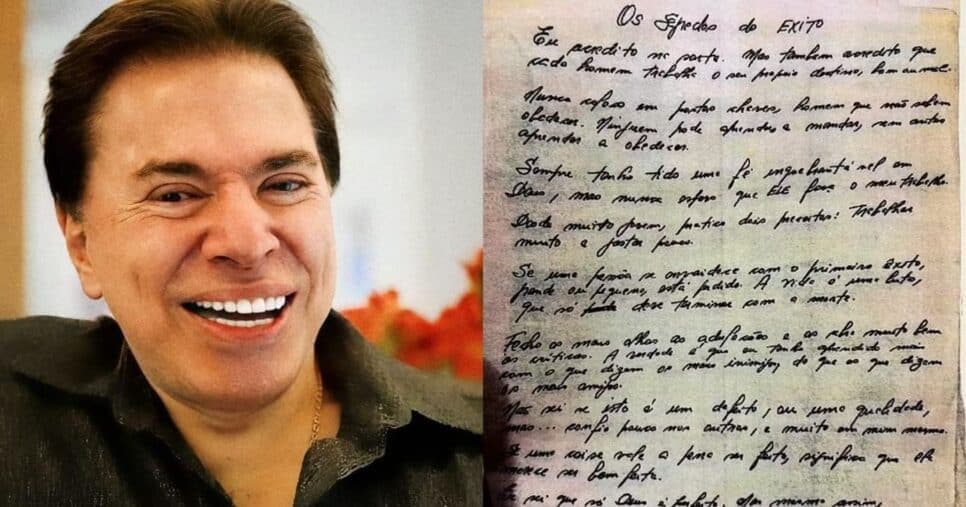 Os Segredos do EXITO
Eu acredito na sorte. Mas também acredito que
cada homem trabalha o seu próprio destino, bom ou mal.
Nunca coloco em postos chaves, homem que não sabem
obedecer. Ninguem pode aprender a mandar, sem antes
aprender a obedecer.
Sempre tenho tido uma fé inquebrantável em
Deus, mas nunca espero que ELE faça o meu trabalho.
Desde muito jovem, pratico dois preceitos: Trabalhar
muito e gastar pouco.
Se uma pessoa se envaidece com o primeiro Exito,
grande ou pequeno, está perdido. A vida é uma luta,
que só deve terminar com a morte.
Fecho os meus olhos as adulações e os abro muito bem
as críticas. A verdade é que eu tenho aprendido mais
com o que dizem os meus inimigos, do que os que dizem
os meus amigos.
Não sei se isto é um defeito, ou uma qualidade,
mas... confio pouco nos outros, e muito em mim mesmo.
Se uma coisa vale a pena ser feita, significa que ela
merece ser bem feita.
Eu sei que só Deus é perfeito. Mas mesmo assim,